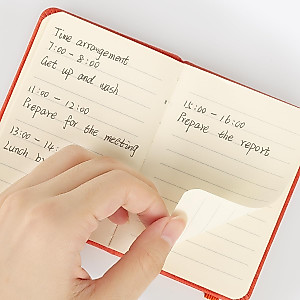 Time arrangement
7:00 - 8:00
Get up and wash
11:00 - 12:00
Prepare for the meeting
13:00 - 14:
Lunch b
15:00 - 16:00
Prepare the report